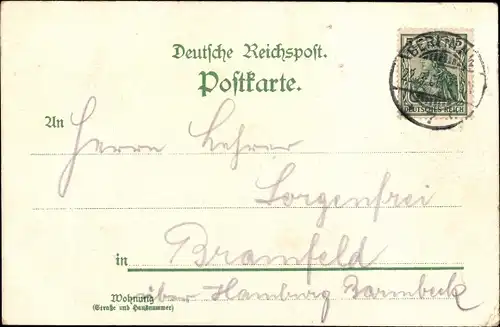 Deutsche Reichspost.
Postkarte.
DEUTSCHES REICH
An
Herrn Lehrer
Sorgenfrei
in
Bramfeld
Wohnung
über Hamburg Barmbeck
(Straße und Hausnummer)